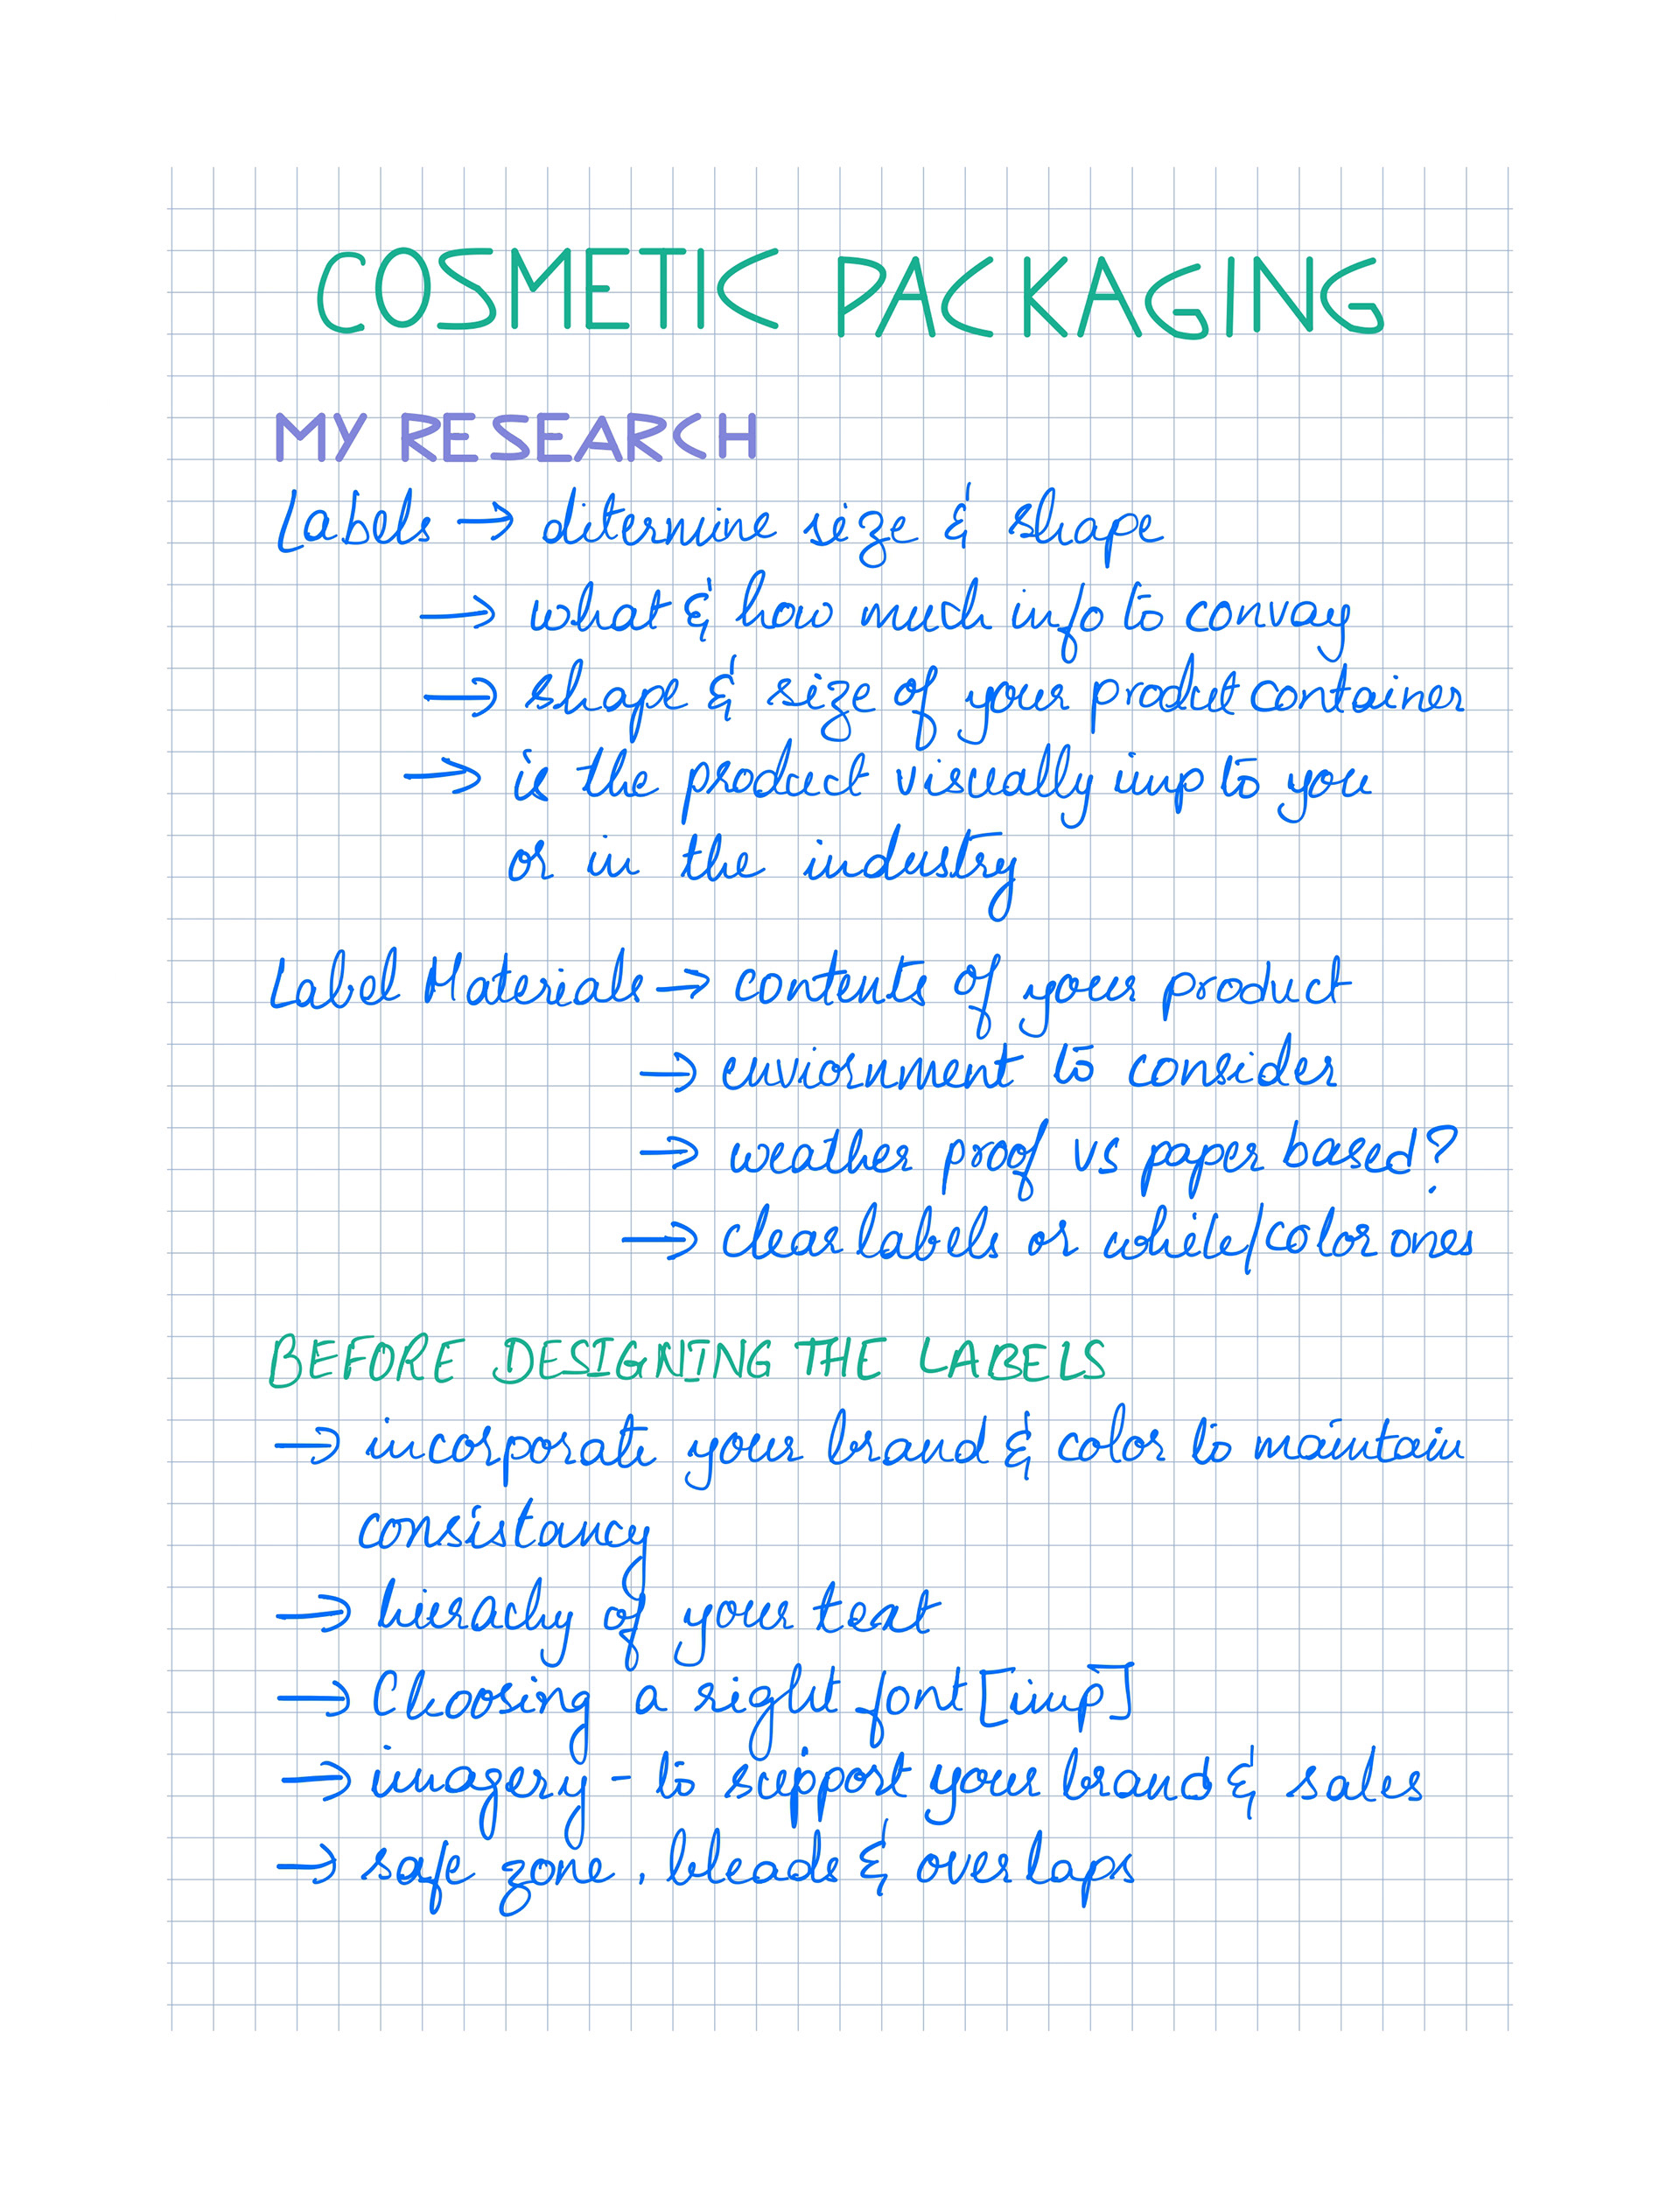 COSMETIC PACKAGING
MY RESEARCH
Labels → ditermine size & shape
→ what & how much info to convay
→ shape & size of your product container
→ is the product visually imp to you
or in the industry
Label Materials → contents of your product
→ enviornment to consider
→ weather proof vs paper based?
→ clear labels or white/color ones
BEFORE DESIGNING THE LABELS
→ incorporate your brand & color to maintain
consistancy
→ hierachy of your text
→ Choosing a right font [imp]
→ imagery - to support your brand & sales
→ safe zone, bleads & overlaps